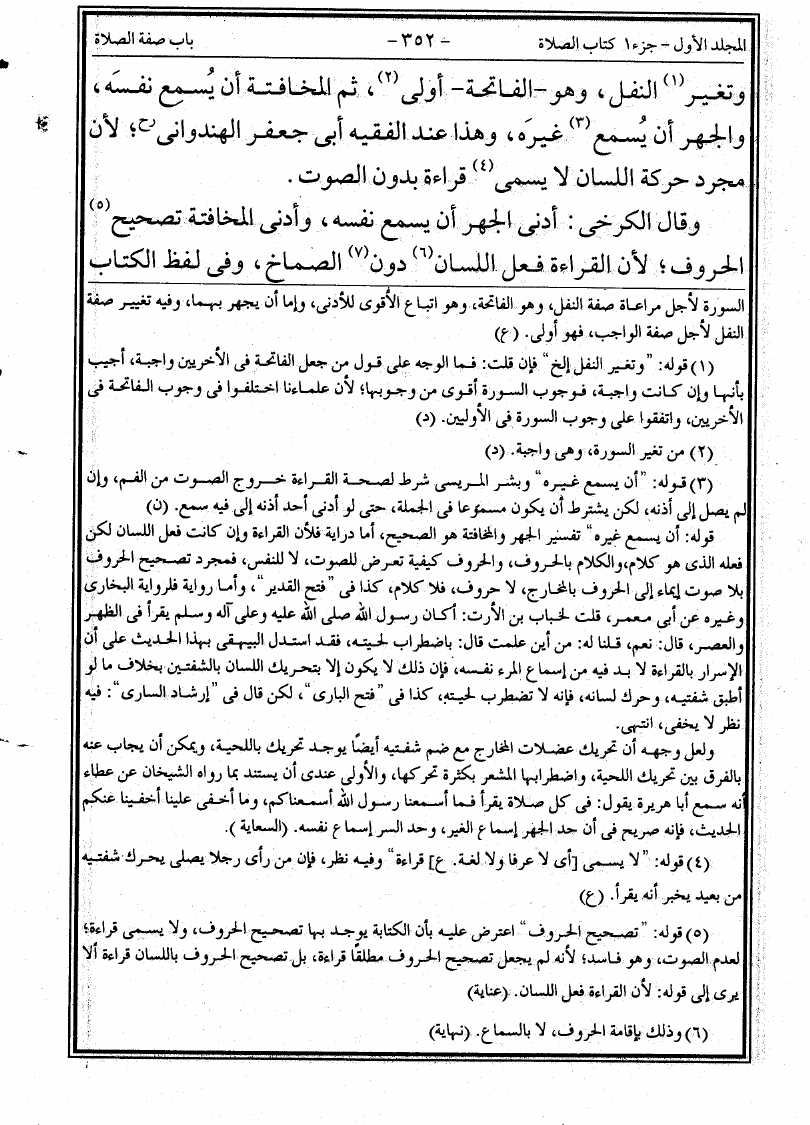 المجلد الأول - جزء ١ كتاب الصلاة - ٣٥٢ - باب صفة الصلاة
وتغير(١) النفل، وهو -الفاتحة- أولى(٢)، ثم المخافتة أن يُسمع نفسَه،
والجهر أن يُسمع(٣) غيرَه، وهذا عند الفقيه أبى جعفر الهندوانىرح؛ لأن
مجرد حركة اللسان لا يسمى(٤) قراءة بدون الصوت.
وقال الكرخى: أدنى الجهر أن يسمع نفسه، وأدنى المخافتة تصحيح(٥)
الحروف؛ لأن القراءة فعل اللسان(٦) دون(٧) الصماخ، وفى لفظ الكتاب
السورة لأجل مراعاة صفة النفل، وهو الفاتحة، وهو اتباع الأقوى للأدنى، وإما أن يجهر بهما، وفيه تغيير صفة
النفل لأجل صفة الواجب، فهو أولى. (ع)
(١) قوله: "وتغير النفل إلخ" فإن قلت: فما الوجه على قول من جعل الفاتحة فى الأخريين واجبة، أجيب
بأنها وإن كانت واجبة، فوجوب السورة أقوى من وجوبها؛ لأن علماءنا اختلفوا فى وجوب الفاتحة فى
الأخريين، واتفقوا على وجوب السورة فى الأوليين. (د)
(٢) من تغير السورة، وهى واجبة. (د)
(٣) قوله: "أن يسمع غيره" وبشر المريسى شرط لصحة القراءة خروج الصوت من الفم، وإن
لم يصل إلى أذنه، لكن يشترط أن يكون مسموعا فى الجملة، حتى لو أدنى أحد أذنه إلى فيه سمع. (ن)
قوله: أن يسمع غيره" تفسير الجهر والمخافتة هو الصحيح، أما دراية فلأن القراءة وإن كانت فعل اللسان لكن
فعله الذى هو كلام، والكلام بالحروف، والحروف كيفية تعرض للصوت، لا للنفس، فمجرد تصحيح الحروف
بلا صوت إيماء إلى الحروف بالمخارج، لا حروف، فلا كلام، كذا فى "فتح القدير"، وأما رواية فلرواية البخارى
وغيره عن أبى معمر، قلت لخباب بن الأرت: أكان رسول الله صلى الله عليه وعلى آله وسلم يقرأ فى الظهر
والعصر، قال: نعم، قلنا له: من أين علمت قال: باضطراب لحيته، فقد استدل البيهقى بهذا الحديث على أن
الإسرار بالقراءة لا بد فيه من إسماع المرء نفسه، فإن ذلك لا يكون إلا بتحريك اللسان بالشفتين بخلاف ما لو
أطبق شفتيه، وحرك لسانه، فإنه لا تضطرب لحيته، كذا فى "فتح البارى"، لكن قال فى "إرشاد السارى": فيه
نظر لا يخفى، انتهى.
ولعل وجهه أن تحريك عضلات المخارج مع ضم شفتيه أيضًا يوجد تحريك باللحية، ويمكن أن يجاب عنه
بالفرق بين تحريك اللحية، واضطرابها المشعر بكثرة تحركها، والأولى عندى أن يستند بما رواه الشيخان عن عطاء
أنه سمع أبا هريرة يقول: فى كل صلاة يقرأ فما أسمعنا رسول الله أسمعناكم، وما أخفى علينا أخفينا عنكم
الحديث، فإنه صريح فى أن حد الجهر إسماع الغير، وحد السر إسماع نفسه. (السعاية).
(٤) قوله: "لا يسمى [أى لا عرفا ولا لغة. ع] قراءة" وفيه نظر، فإن من رأى رجلا يصلى يحرك شفتيه
من بعيد يخبر أنه يقرأ. (ع)
(٥) قوله: "تصحيح الحروف" اعترض عليه بأن الكتابة يوجد بها تصحيح الحروف، ولا يسمى قراءة؛
لعدم الصوت، وهو فاسد؛ لأنه لم يجعل تصحيح الحروف مطلقًا قراءة، بل تصحيح الحروف باللسان قراءة ألا
يرى إلى قوله: لأن القراءة فعل اللسان. (عناية)
(٦) وذلك بإقامة الحروف، لا بالسماع. (نهاية)